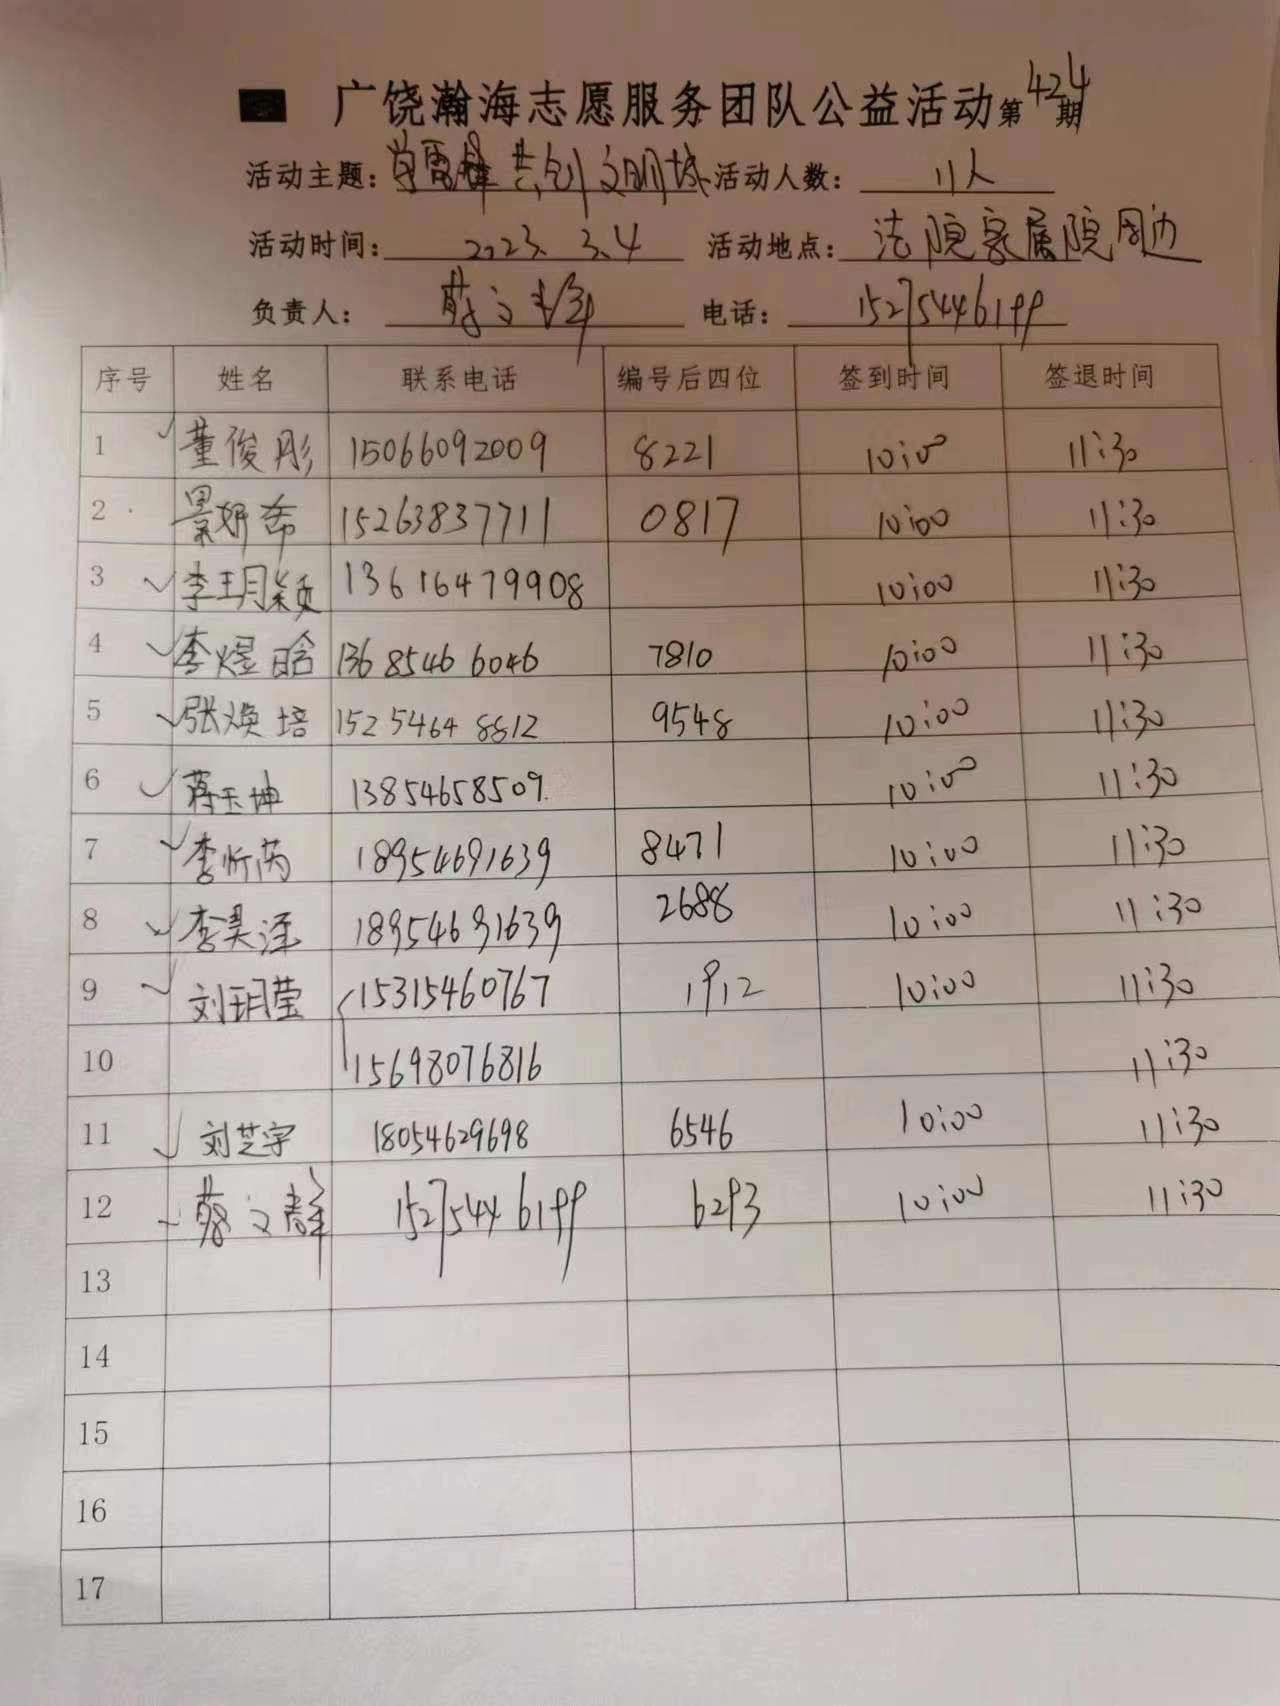 广饶瀚海志愿服务团队公益活动第424期
活动主题：学雷锋 共创文明城 活动人数：11人
活动时间：2023.3.4 活动地点：法院家属院周边
负责人：蔡文群 电话：15275446199
序号 姓名 联系电话 编号后四位 签到时间 签退时间
1 ✓ 董俊彤 15066092009 8221 10:00 11:30
2 景妍希 15263837711 0817 10:00 11:30
3 ✓ 李玥颖 13616479908 10:00 11:30
4 ✓ 李煜晗 13685466046 7810 10:00 11:30
5 ✓ 张焕培 15254648812 9548 10:00 11:30
6 ✓ 蒋玉坤 13854658509 10:00 11:30
7 ✓ 李忻芮 18954691639 8471 10:00 11:30
8 ✓ 李昊泽 18954691639 2688 10:00 11:30
9 ✓ 刘玥莹 15315460767 1912 10:00 11:30
10 15698076816 11:30
11 ✓ 刘芝宇 18054629698 6546 10:00 11:30
12 ✓ 蔡文群 15275446199 6293 10:00 11:30
13
14
15
16
17